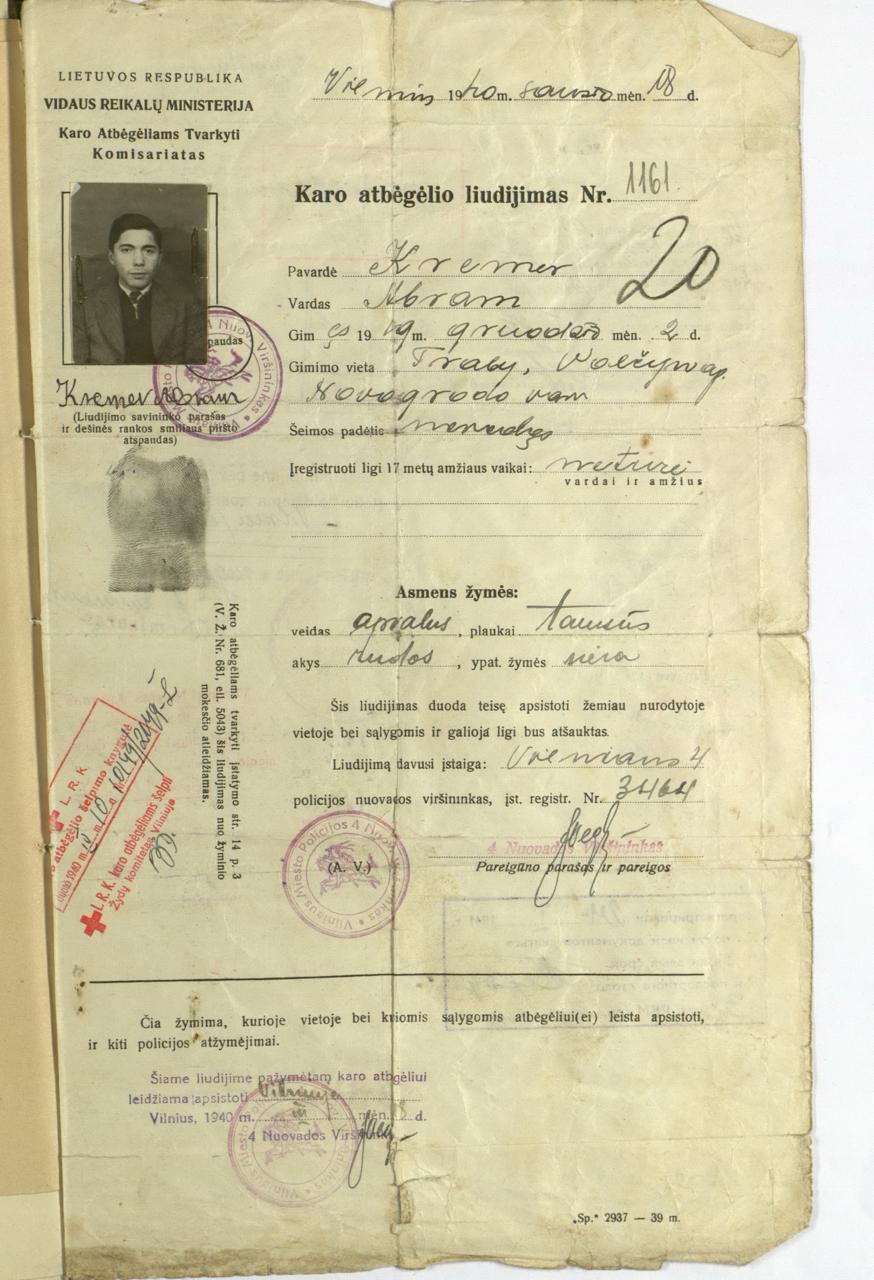 LIETUVOS RESPUBLIKA
VIDAUS REIKALŲ MINISTERIJA
Karo Atbėgėliams Tvarkyti
Komisariatas
Vilnius 1940 m. sausio mėn. 18 d.
Karo atbėgėlio liudijimas Nr. 1161.
20
Pavardė Kremer
Vardas Abram
Gim ęs 1919 m. gruodžio mėn. 2 d.
Gimimo vieta Traby,
Šeimos padėtis nevedęs
Įregistruoti ligi 17 metų amžiaus vaikai: neturi
vardai ir amžius
paudas
Kremer Abram
(Liudijimo savininko parašas
ir dešinės rankos smiliaus piršto
atspaudas)
Asmens žymės:
veidas apvalus, plaukai tamsūs
akys rudos, ypat. žymės nėra
Šis liudijimas duoda teisę apsistoti žemiau nurodytoje
vietoje bei sąlygomis ir galioja ligi bus atšauktas.
Liudijimą davusi įstaiga: Vilniaus 4
policijos nuovados viršininkas, įst. registr. Nr. 3464
4 Nuovados Viršininkas
(A. V.) Pareigūno parašas ir pareigos
Vilniaus Miesto Policijos 4 Nuov. Viršininkas
Karo atbėgėliams tvarkyti įstatymo str. 14 p. 3
(V. Ž. Nr. 681, eil. 5043) šis liudijimas nuo žyminio
mokesčio atleidžiamas.
L. R. K.
atbėgėlio šelpimo knygutė
1940 m.
L. R. K. karo atbėgėliams šelpti
Žydų komitetas Vilniuje
Čia žymima, kurioje vietoje bei kuriomis sąlygomis atbėgėliui(ei) leista apsistoti,
ir kiti policijos atžymėjimai.
Šiame liudijime pažymėtam karo atbėgėliui
leidžiama apsistoti Vilniuje
Vilnius, 1940 m. mėn. d.
4 Nuovados Viršininkas
„Sp.“ 2937 — 39 m.